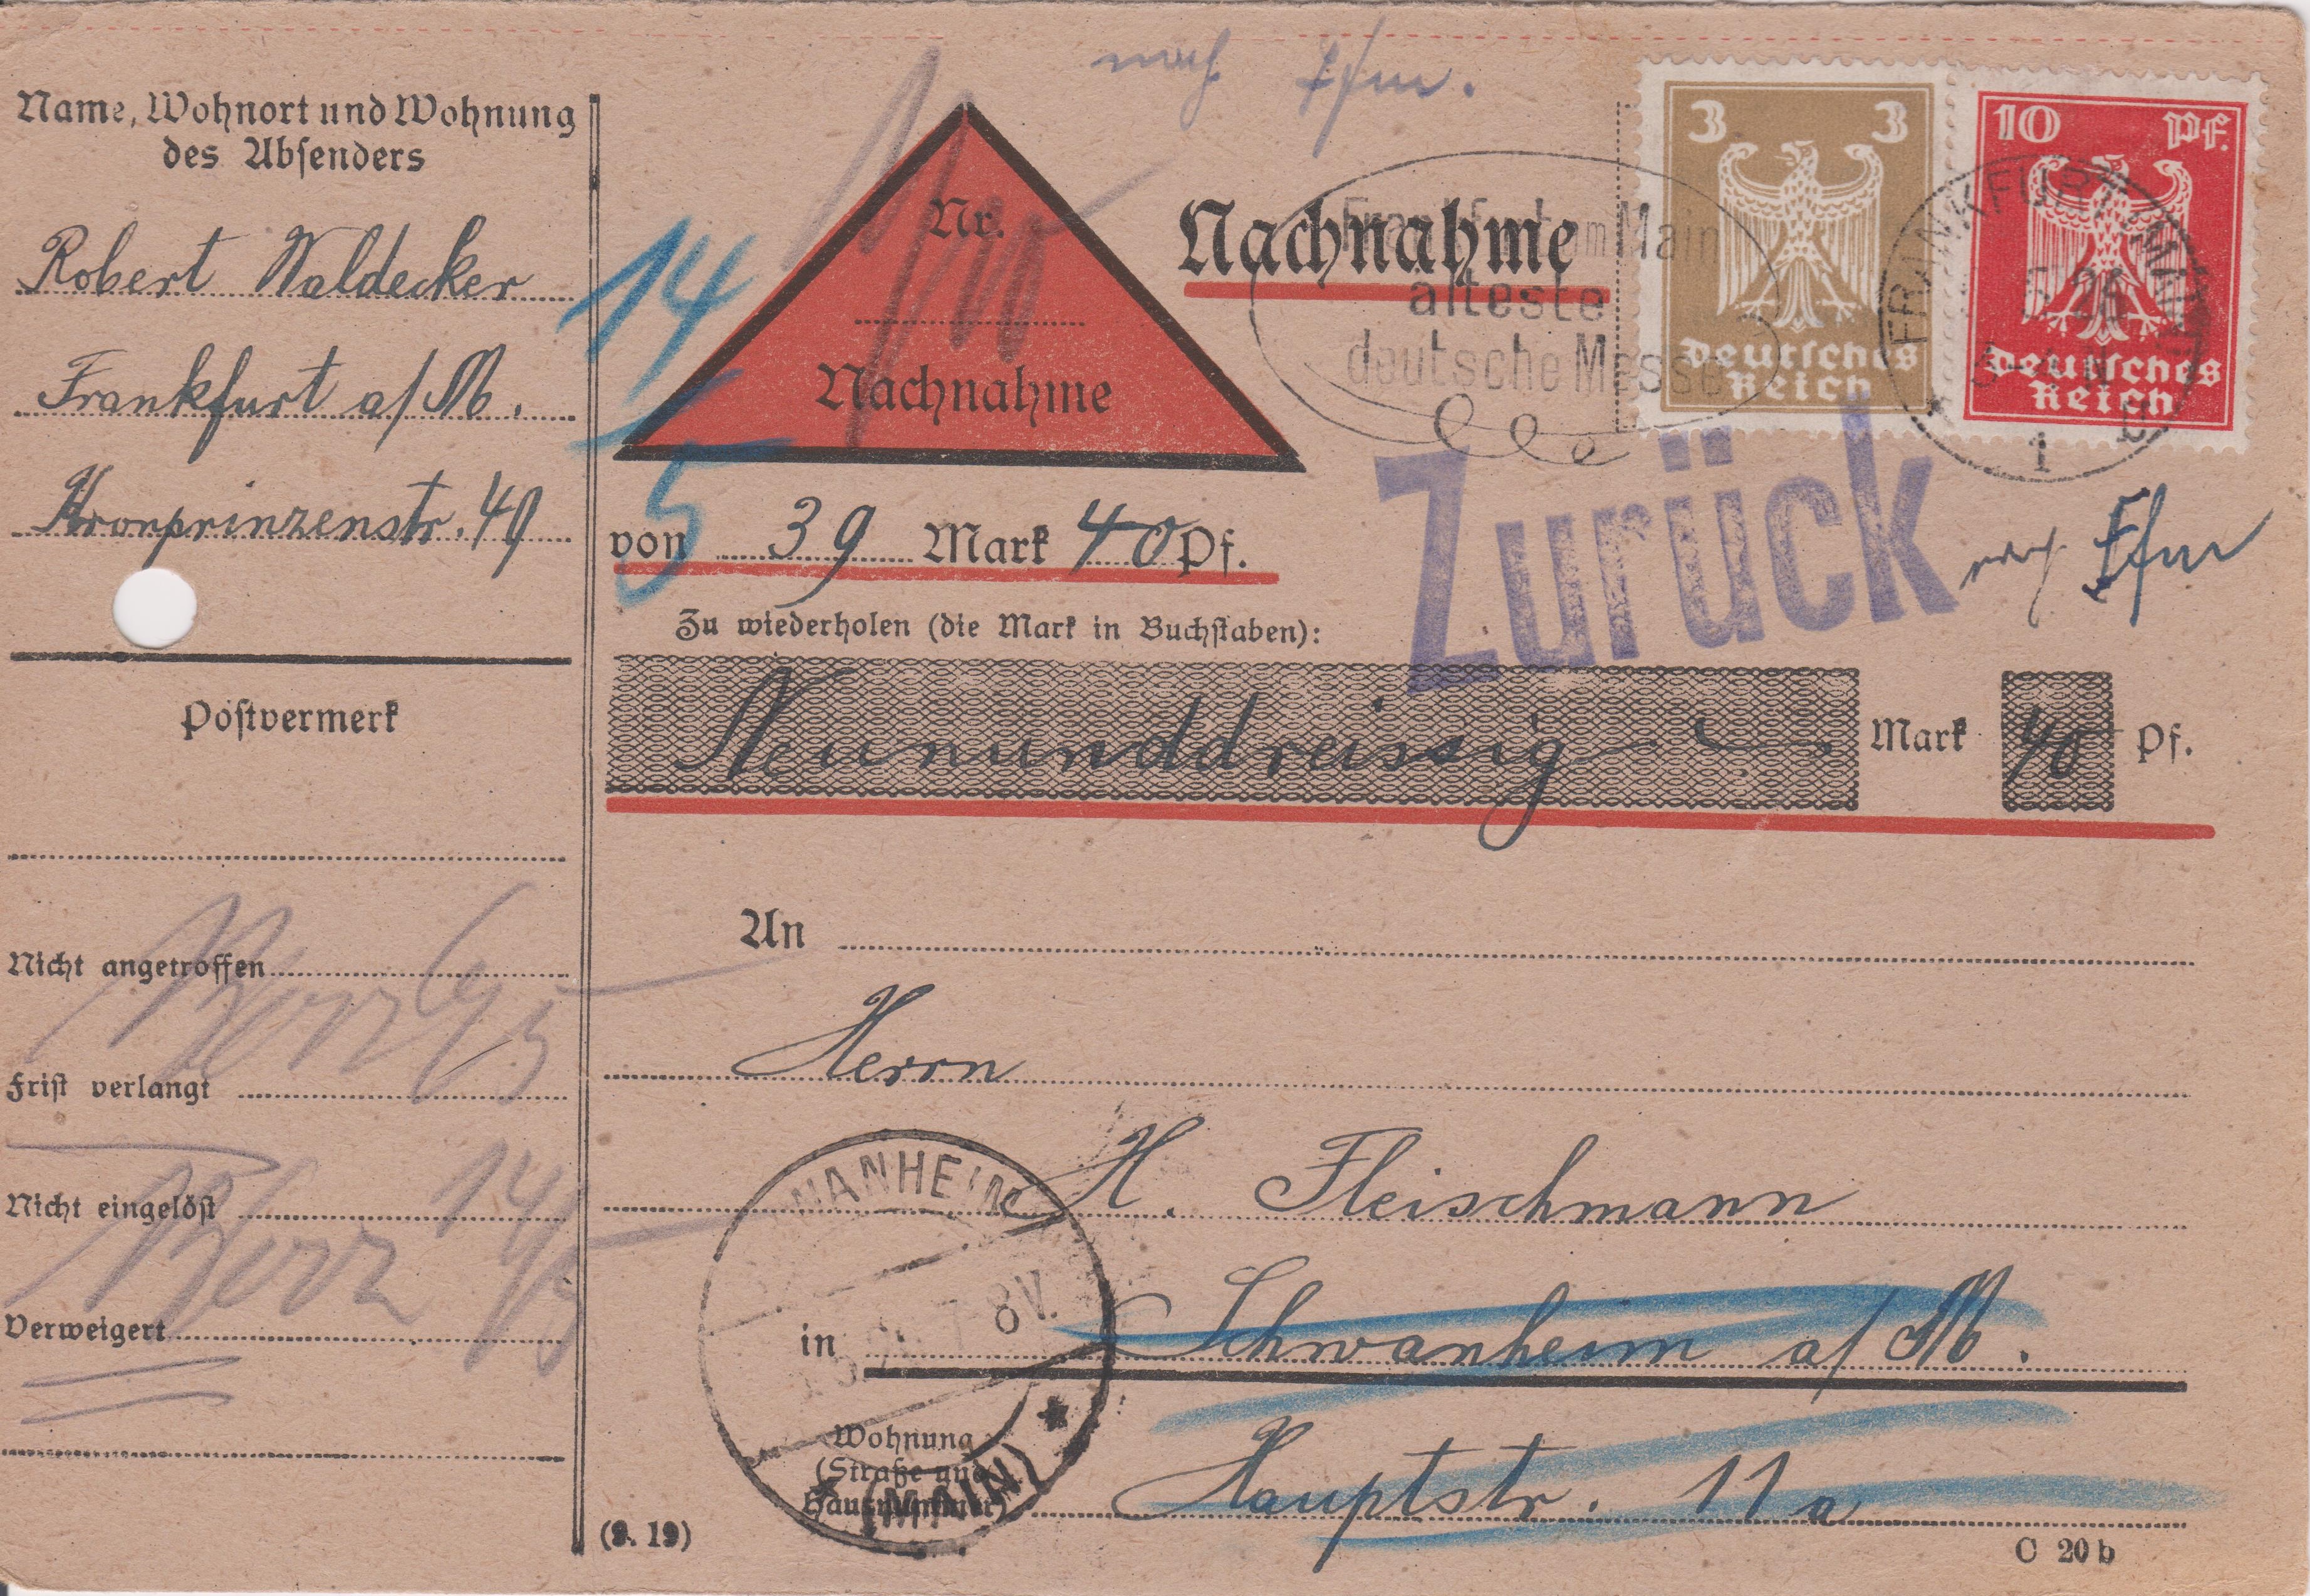 Name, Wohnort und Wohnung
des Absenders
Robert Waldecker
Frankfurt a/M.
Kronprinzenstr. 49
Postvermerk
Nicht angetroffen
Frist verlangt
Nicht eingelöst
Verweigert
nach Ffm.
14
5
Nr.
Nachnahme
Nachnahme
Frankfurt am Main
älteste
deutsche Messe
3 3
Deutsches
Reich
10 Pf.
Deutsches
Reich
FRANKFURT (MAIN)
5 26
1 b
Zurück
nach Ffm
von 39 Mark 40 Pf.
Zu wiederholen (die Mark in Buchstaben):
Neununddreissig Mark 40 Pf.
An
Herrn
H. Fleischmann
in Schwanheim a/M.
Wohnung
(Straße und
Hausnummer) Hauptstr. 11a
WANHEIM
7-8V.
(MAIN)
(9. 19)
C 20 b